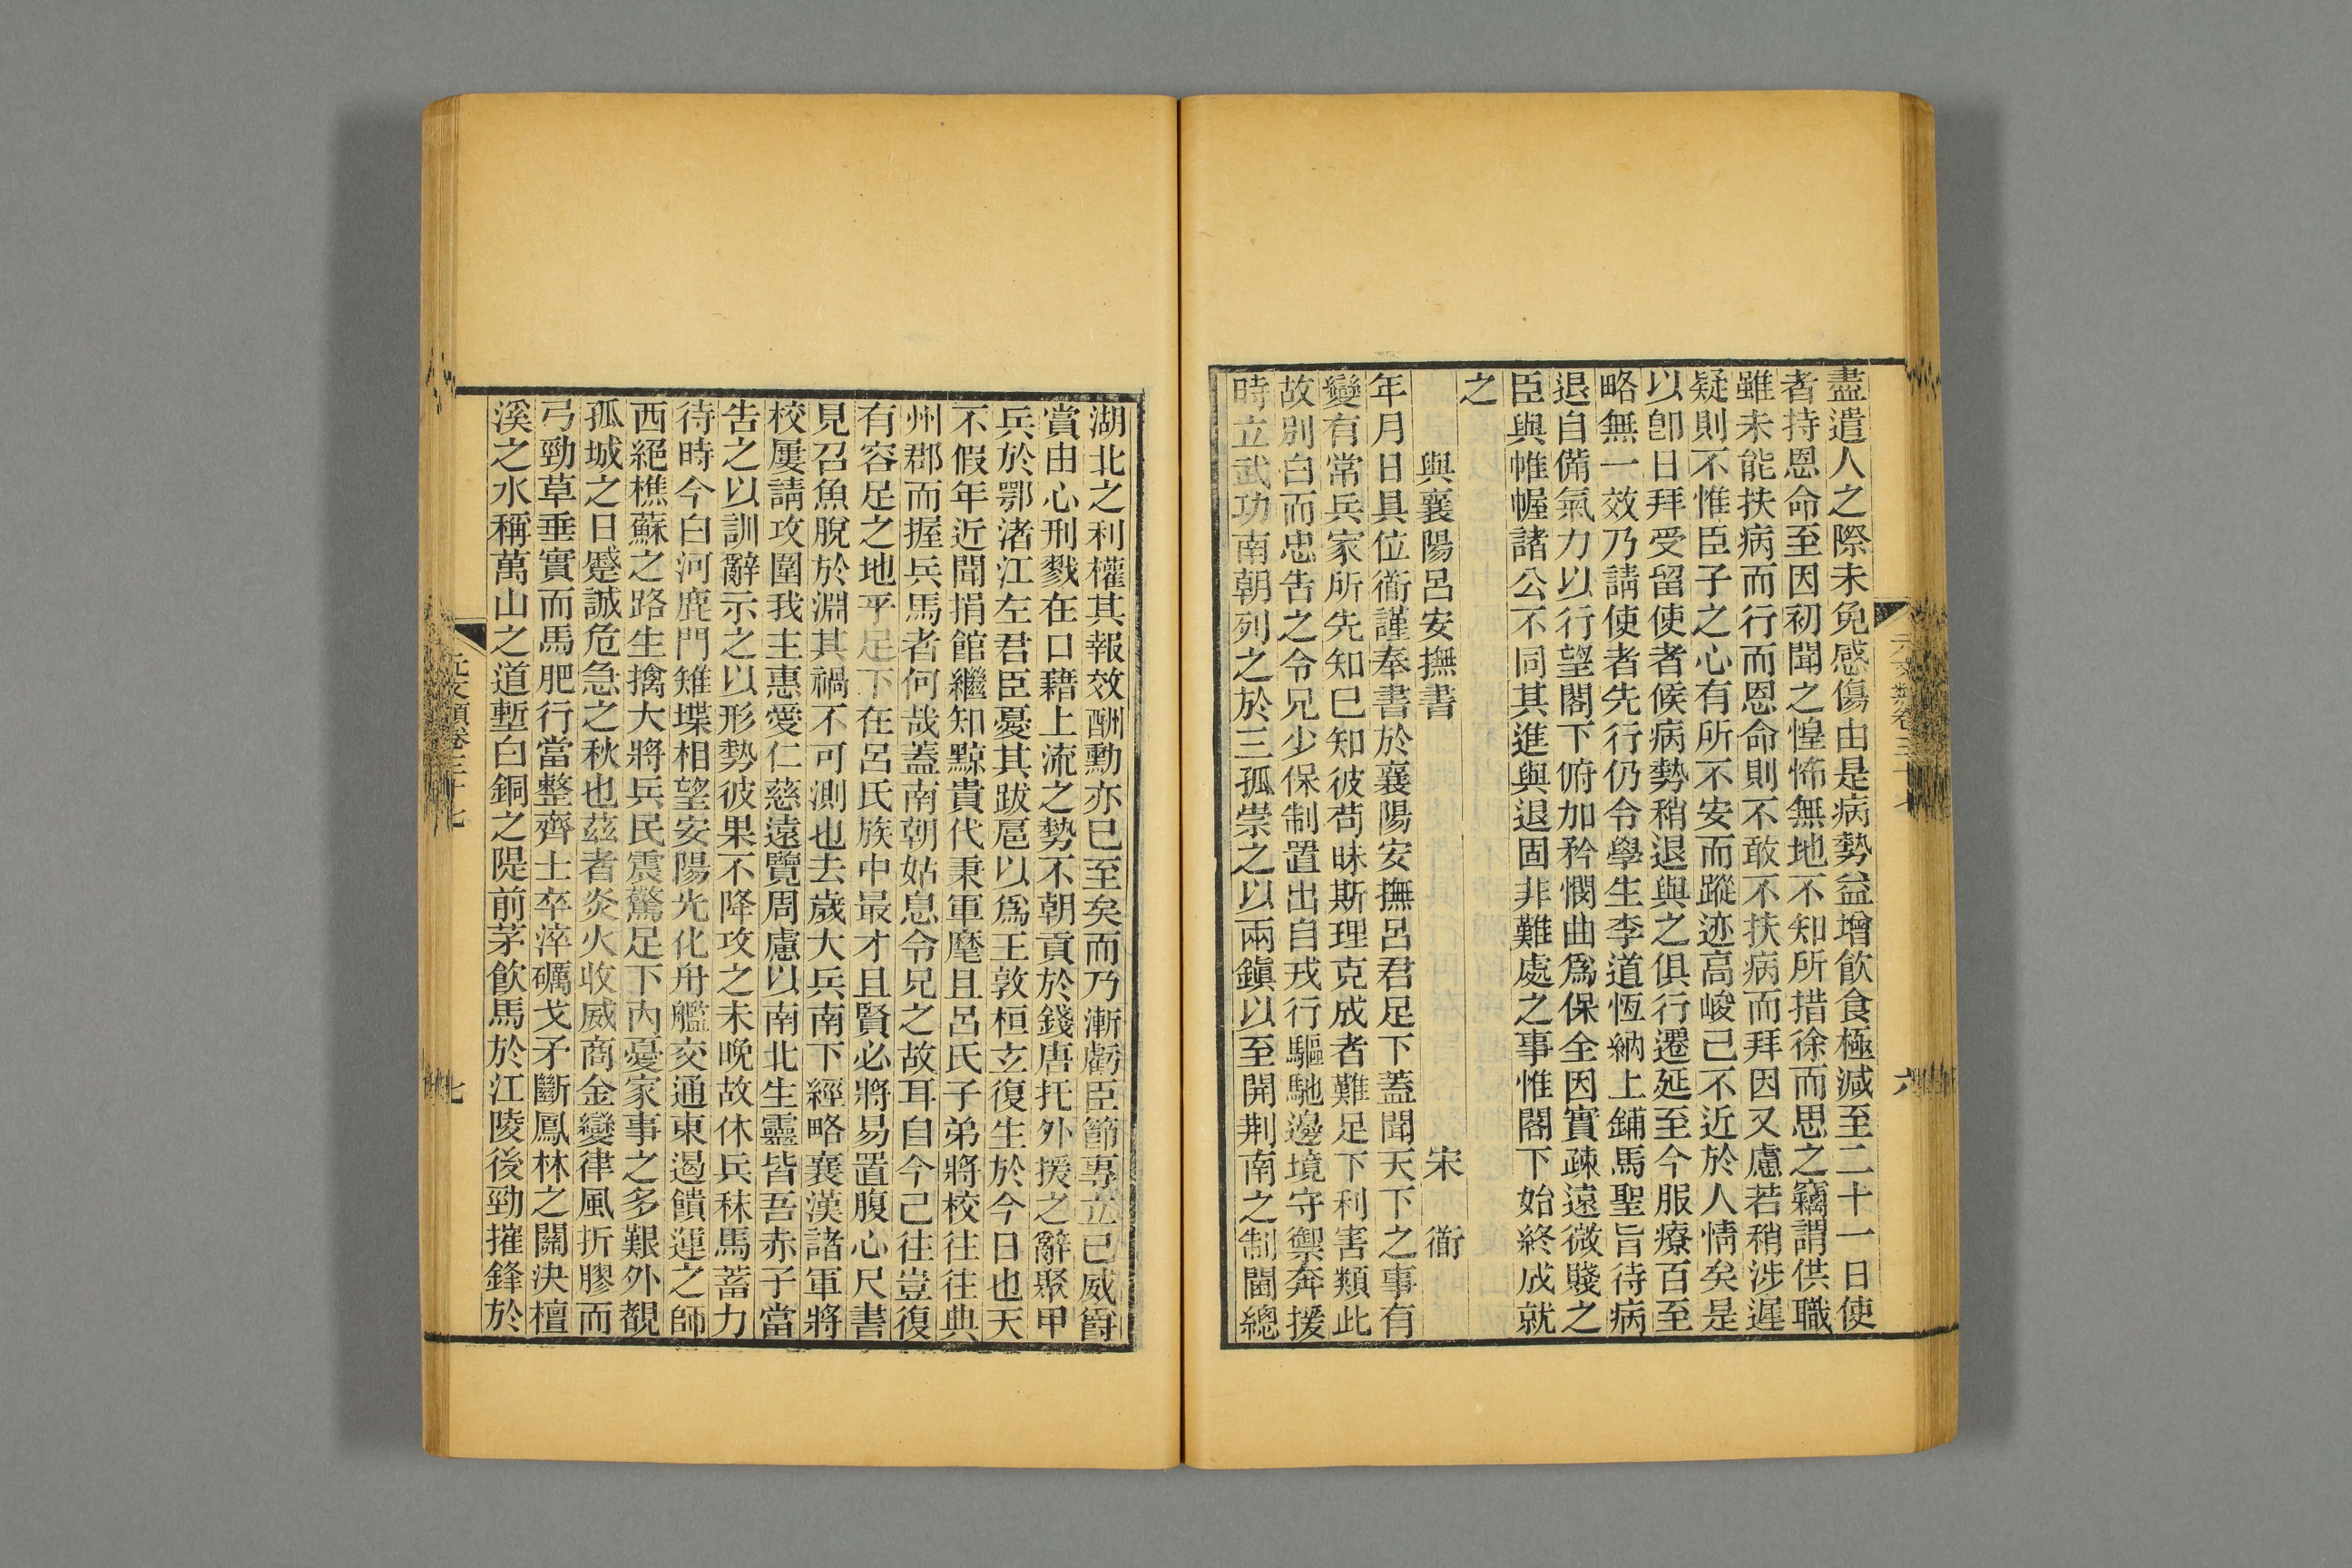 盡遣人之際未免感傷由是病勢益增飲食極減至二十一日使
者持恩命至因初聞之惶怖無地不知所措徐而思之竊謂供職
雖未能扶病而行而恩命則不敢不扶病而拜因又慮若稍涉遲
疑則不惟臣子之心有所不安而蹤迹高峻己不近於人情矣是
以卽日拜受留使者候病勢稍退與之俱行遷延至今服療百至
略無一效乃請使者先行仍令學生李道恆納上鋪馬聖旨待病
退自備氣力以行望閣下俯加矜憫曲爲保全因實疎遠微賤之
臣與帷幄諸公不同其進與退固非難處之事惟閣下始終成就
之
與襄陽呂安撫書 宋衜
年月日具位衜謹奉書於襄陽安撫呂君足下蓋聞天下之事有
變有常兵家所先知已知彼苟昧斯理克成者難足下利害類此
故別白而忠告之令兄少保制置出自戎行驅馳邊境守禦奔援
時立武功南朝列之於三孤崇之以兩鎮以至開荆南之制閫總
元文類卷三十七 六
湖北之利權其報效酬勳亦已至矣而乃漸虧臣節專立己威爵
賞由心刑戮在口藉上流之勢不朝貢於錢唐托外援之辭聚甲
兵於鄂渚江左君臣憂其跋扈以爲王敦桓玄復生於今日也天
不假年近聞捐館繼知黥貴代秉軍麾且呂氏子弟將校往往典
州郡而握兵馬者何哉蓋南朝姑息令兄之故耳自今己往豈復
有容足之地乎足下在呂氏族中最才且賢必將易置腹心尺書
見召魚脫於淵其禍不可測也去歲大兵南下經略襄漢諸軍將
校屢請攻圍我主惠愛仁慈遠覽周慮以南北生靈皆吾赤子當
告之以訓辭示之以形勢彼果不降攻之未晚故休兵秣馬蓄力
待時今白河鹿門雉堞相望安陽光化舟艦交通東遏饋運之師
西絕樵蘇之路生擒大將兵民震驚足下內憂家事之多艱外覩
孤城之日蹙誠危急之秋也茲者炎火收威商金變律風折膠而
弓勁草垂實而馬肥行當整齊士卒淬礪戈矛斷鳳林之關決檀
溪之水稱萬山之道塹白銅之隄前茅飲馬於江陵後勁摧鋒於
元文類卷三十七 七